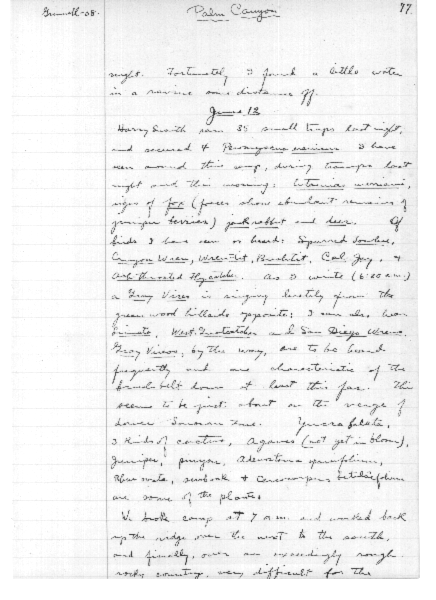 Grinnell-08.
Palm Canyon
77
night. Fortunately I found a little water
in a ravine some distance off.
June 12
Harry Swarth ran 35 small traps last night,
and secured 4 Peromyscus eremicus. I have
seen around this camp, during tramps last
night and this morning:
signs of fox (feces show abundant remains of
juniper berries) jack rabbit and deer. Of
birds I have seen or heard: Spurred Towhee,
Canyon Wren, Wren-tit, Bush-tit, Cal. Jay, +
Ash-throated Flycatcher. As I write (6:20 a.m.)
a Gray Vireo is singing lustily from the
greasewood hillside opposite; I can also hear
West. Gnatcatcher and San Diego Wrens.
Gray Vireos, by the way, are to be heard
frequently and are characteristic of the
brush belt down at least this far. This
seems to be just about on the verge of
Lower Sonoran zone. Yucca
3 kinds of cactus, Agaves (not yet in bloom),
Juniper, pinyon, Adenostoma sparsifolium,
Rhus ovata, scrub oak + Cercocarpus betulaefolius
are some of the plants.
We broke camp at 7 a.m. and worked back
up the ridge over the west to the south,
and finally, over an exceedingly rough
rocky country, very difficult for the